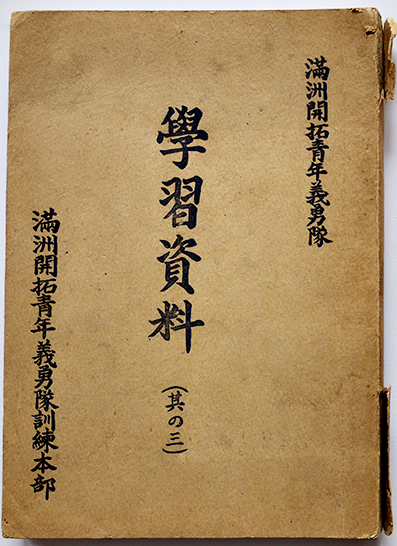 滿洲開拓青年義勇隊
學習資料
(其の三)
滿洲開拓青年義勇隊訓練本部